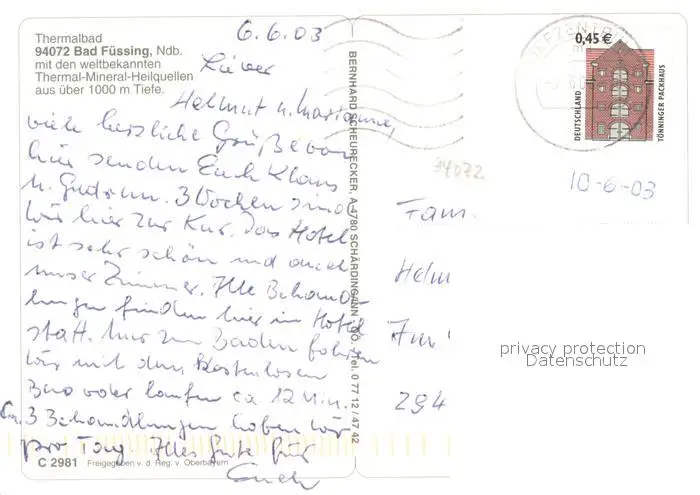 Thermalbad
94072 Bad Füssing, Ndb.
mit den weltbekannten
Thermal-Mineral-Heilquellen
aus über 1000 m Tiefe.
6.6.03
Lieber
Helmut u. Marianne,
viele herzliche Grüße von
hier senden Euch Klaus
u. Gudrun. 3 Wochen sind
wir hier zur Kur. Das Hotel
ist sehr schön und auch
unser Zimmer. Alle Behand-
lungen finden hier im Hotel
statt. Nur zum Baden fahren
wir mit dem kostenlosen
Bus oder laufen ca 12 Min.
Ca. 3 Behandlungen haben wir
pro Tag. Alles Gute für
Euch
C 2981 Freigegeben v. d. Reg. v. Oberbayern
BERNHARD SCHEURECKER, A-4780 SCHÄRDING/INN, OÖ., Tel. 0 77 12 / 47 42
0,45 €
DEUTSCHLAND
TÖNNINGER PACKHAUS
94072
10-6-03
Fam.
Helm
Am
294
privacy protection
Datenschutz